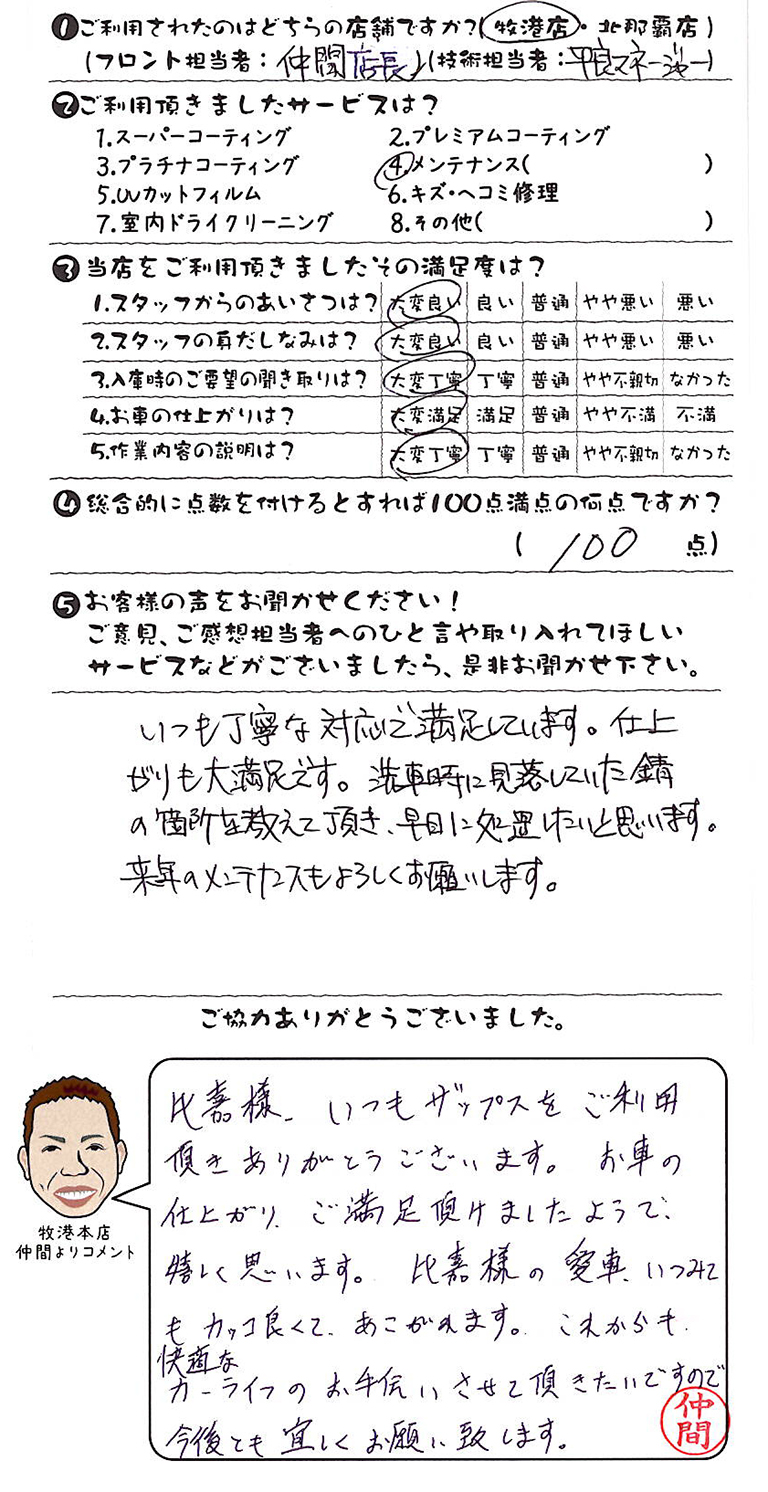 ❶ご利用されたのはどちらの店舗ですか?(牧港店・北那覇店)
(フロント担当者:仲間店長)(技術担当者:平良マネージャー)
❷ご利用頂きましたサービスは?
1.スーパーコーティング 2.プレミアムコーティング
3.プラチナコーティング 4.メンテナンス( )
5.UVカットフィルム 6.キズ・ヘコミ修理
7.室内ドライクリーニング 8.その他( )
❸当店をご利用頂きましたその満足度は?
1.スタッフからのあいさつは? 大変良い 良い 普通 やや悪い 悪い
2.スタッフの身だしなみは? 大変良い 良い 普通 やや悪い 悪い
3.入庫時のご要望の聞き取りは? 大変丁寧 丁寧 普通 やや不親切 なかった
4.お車の仕上がりは? 大変満足 満足 普通 やや不満 不満
5.作業内容の説明は? 大変丁寧 丁寧 普通 やや不親切 なかった
❹総合的に点数を付けるとすれば100点満点の何点ですか?
( 100 点)
❺お客様の声をお聞かせください!
ご意見、ご感想担当者へのひと言や取り入れてほしい
サービスなどがございましたら、是非お聞かせ下さい。
いつも丁寧な対応で満足しています。仕上
がりも大満足です。洗車時に見落していた錆
の箇所を教えて頂き、早目に処置したいと思います。
来年のメンテナンスもよろしくお願いします。
ご協力ありがとうございました。
比嘉様、いつもザップスをご利用
頂きありがとうございます。お車の
仕上がり、ご満足頂けましたようで、
嬉しく思います。比嘉様の愛車、いつみて
もカッコ良くて、あこがれます。これからも、
快適な
カーライフのお手伝いさせて頂きたいですので
今後とも宜しくお願い致します。
仲間
牧港本店
仲間よりコメント